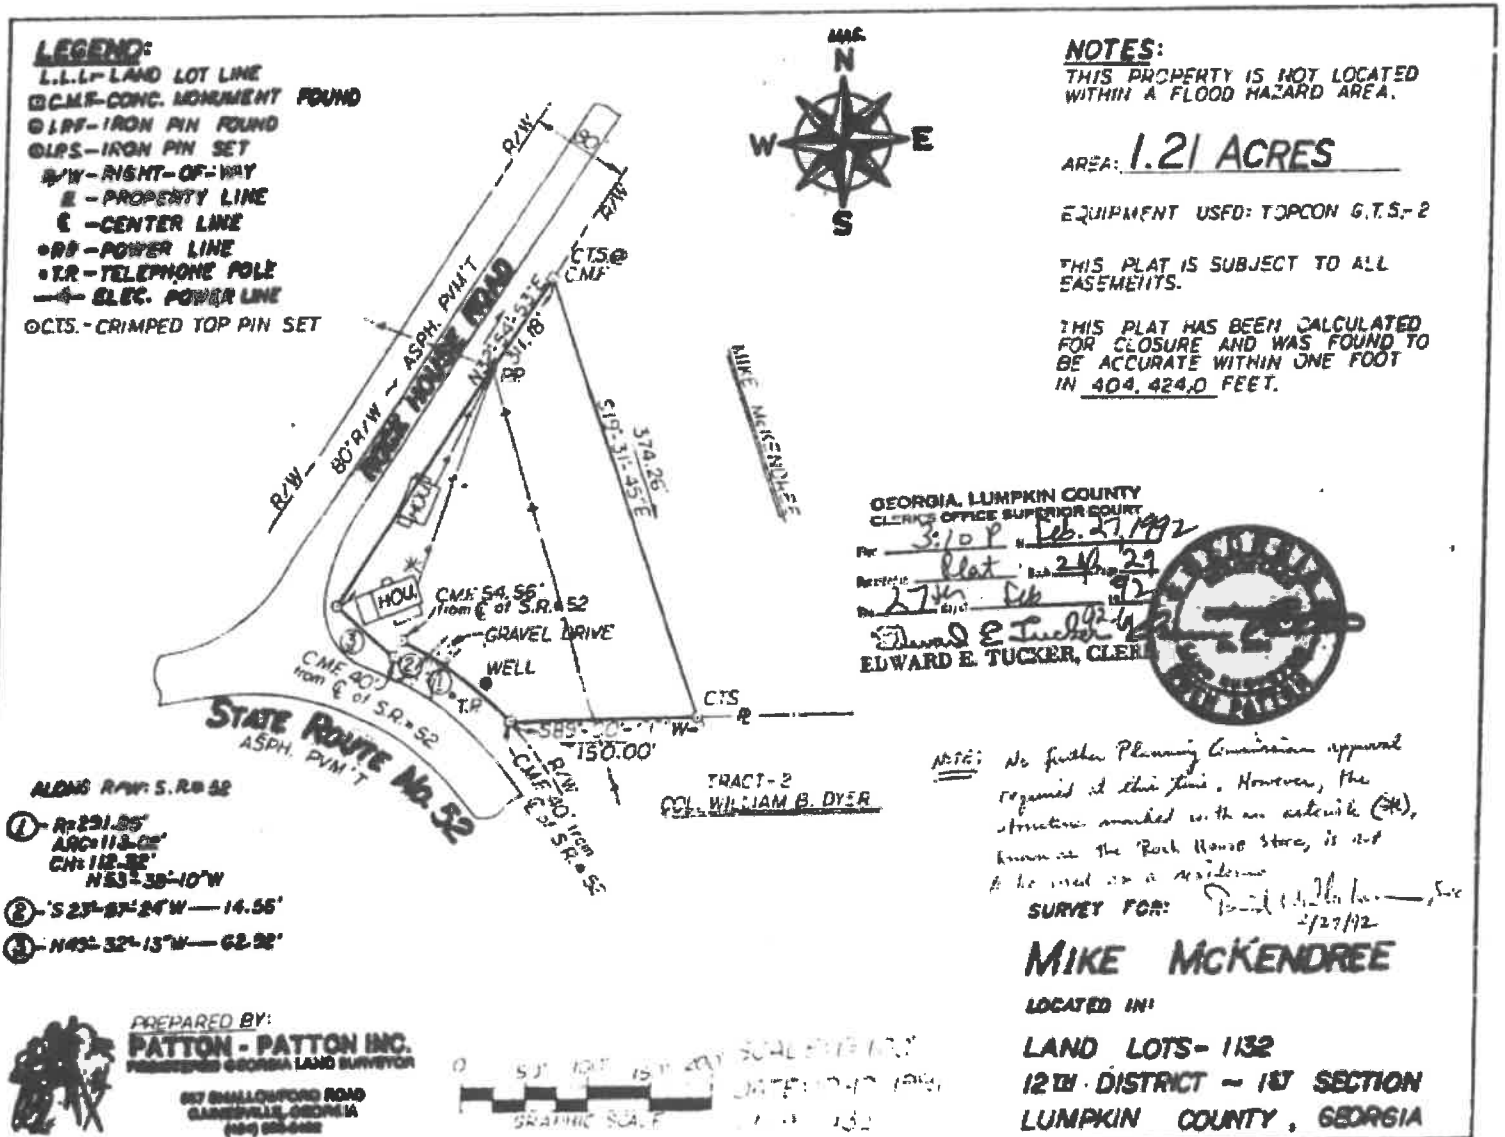 LEGEND:
L.L.L.-LAND LOT LINE
C.M.F.-CONC. MONUMENT FOUND
I.P.F-IRON PIN FOUND
I.P.S.-IRON PIN SET
R/W-RIGHT-OF-WAY
-PROPERTY LINE
-CENTER LINE
-POWER LINE
T.P.-TELEPHONE POLE
ELEC. POWER LINE
C.T.S.-CRIMPED TOP PIN SET
MAG.
N
W
E
S
NOTES:
THIS PROPERTY IS NOT LOCATED
WITHIN A FLOOD HAZARD AREA.
AREA: 1.21 ACRES
EQUIPMENT USED: TOPCON G.T.S.-2
THIS PLAT IS SUBJECT TO ALL
EASEMENTS.
THIS PLAT HAS BEEN CALCULATED
FOR CLOSURE AND WAS FOUND TO
BE ACCURATE WITHIN ONE FOOT
IN 404,424.0 FEET.
R/W
80'
R/W
C.T.S.@
C.M.F.
R/W
80' R/W ~ ASPH. PVM'T
HOUSE ROAD
N32°-54'-53"E
311.18'
P.P.
S19°-31'-45"E
374.26'
MIKE McKENDREE
HOU.
HOU.
*
C.M.F. 54.56'
from ℄ of S.R.# 52
GRAVEL DRIVE
WELL
3
2
1
T.P.
C.M.F. 40'
from ℄ of S.R.# 52
STATE ROUTE No. 52
ASPH. PVM'T
C.T.S.
150.00'
R/W
C.M.F. 40' from
℄ of S.R.# 52
TRACT-2
COL. WILLIAM B. DYER
GEORGIA, LUMPKIN COUNTY
CLERK'S OFFICE SUPERIOR COURT
3:10 P Feb. 27, 1992
Plat 29
27th Feb 92
Edward E Tucker
EDWARD E. TUCKER, CLERK
PATTON
ALONG R/W: S.R.# 52
1
N53°-38'-10"W
2 14.56'
3 -N49°-32'-13"W
NOTE: No further Planning Commission approval
required at this time. However, the
structure marked with an asterisk (*),
known as the Rock House Store, is not
to be used as a residence
2/27/92
SURVEY FOR:
MIKE McKENDREE
LOCATED IN:
LAND LOTS- 1132
12TH DISTRICT ~ 1ST SECTION
LUMPKIN COUNTY, GEORGIA
PREPARED BY:
PATTON - PATTON INC.
REGISTERED GEORGIA LAND SURVEYOR
SHALLOWFORD ROAD
GAINESVILLE, GEORGIA
0 50' 100' 150' 200'
GRAPHIC SCALE